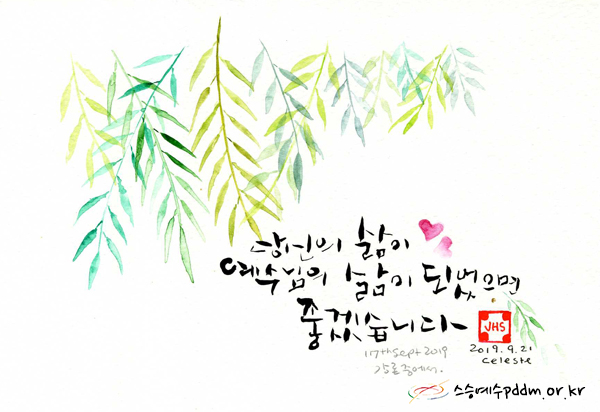 당신의 삶이
예수님의 삶이 되었으면
좋겠습니다
JHS
17th Sept 2019
강론중에서.
2019. 9. 21
celeste
스승예수pddm.or.kr